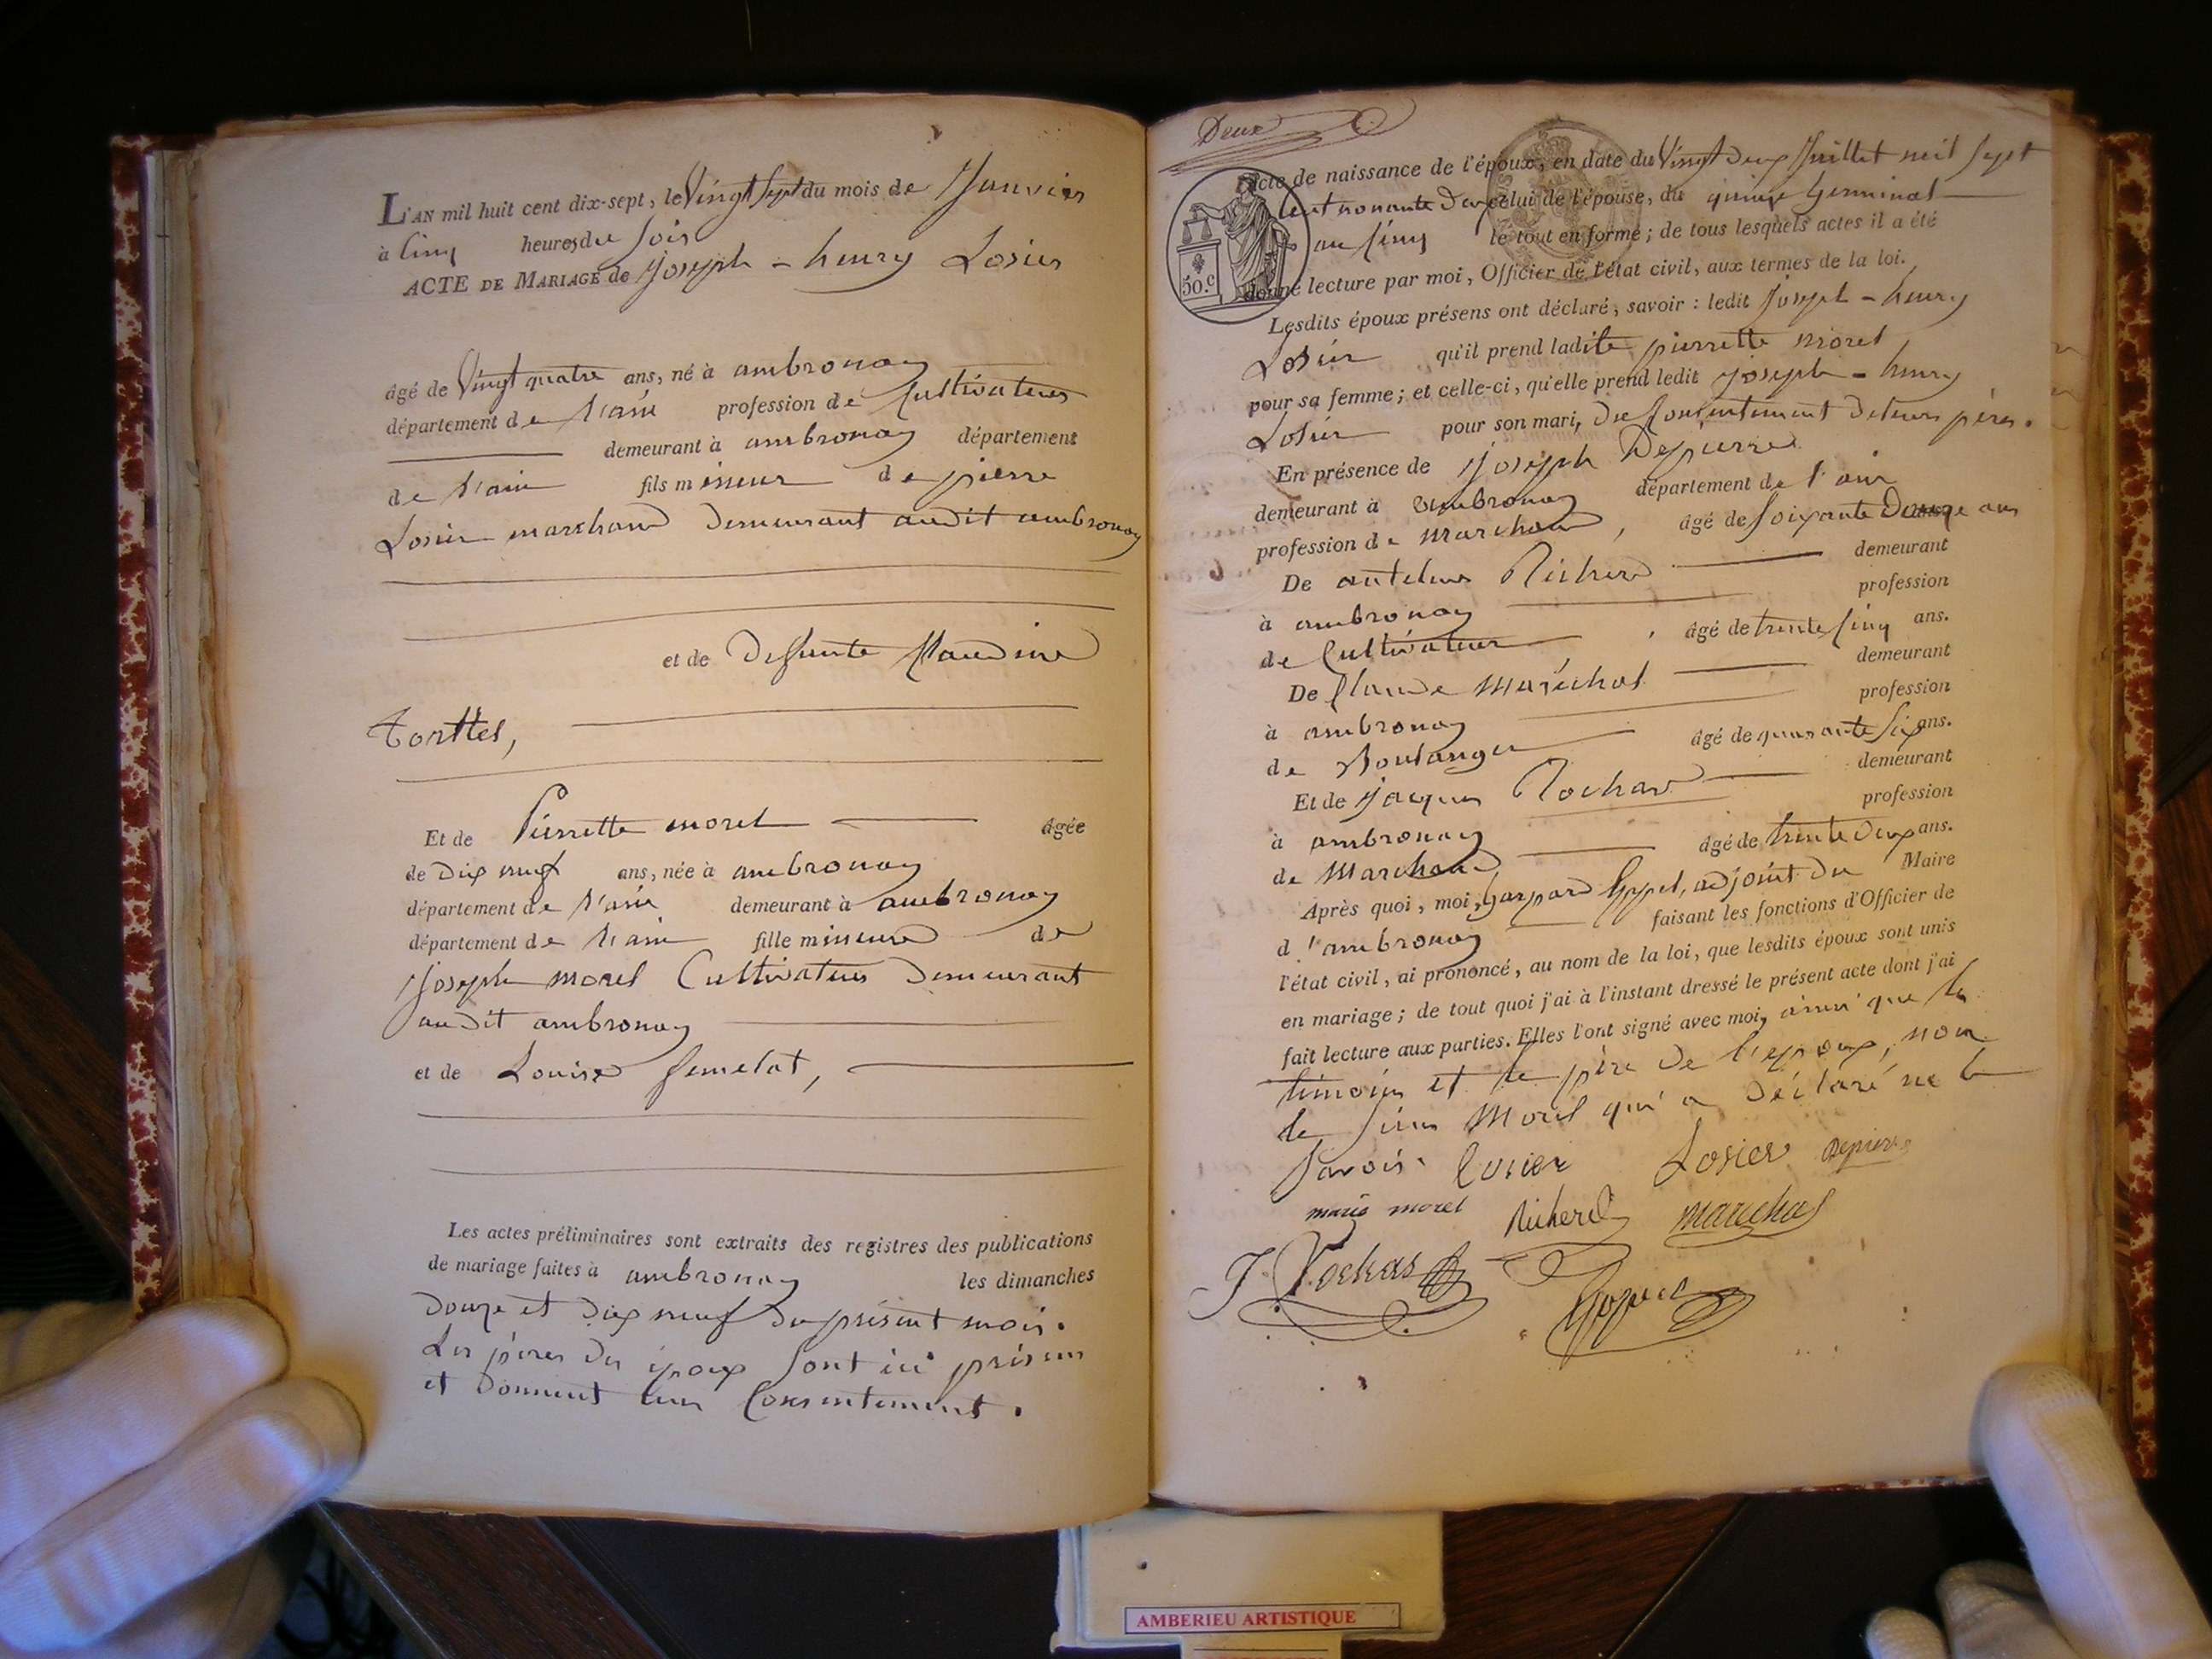 L'AN mil huit cent dix-sept, le Vingt Sept du mois de Janvier
à Cinq heures du Soir
ACTE DE MARIAGE de Joseph - henry Losier
âgé de Vingt quatre ans, né à ambronay
département de l'ain profession de Cultivateur
demeurant à ambronay département
de l'ain fils mineur de pierre
Losier marchand demeurant audit ambronay
et de Defunte Claudine
Torttel,
Et de Pierrette morel âgée
de Dix neuf ans, née à ambronay
département de l'ain demeurant à ambronay
département de l'ain fille mineure de
Joseph morel Cultivateur Demeurant
audit ambronay
et de Louise
Les actes préliminaires sont extraits des registres des publications
de mariage faites à ambronay les dimanches
Douze et Dix neuf du présent mois.
Les pères des époux Sont ici présens
et Donnent leur Consentement.
Deux
acte de naissance de l'époux, en date du Vingt Deux Juillet mil Sept
Cent nonante Deux celui de l'épouse, du quinze Germinal
an Cinq le tout en forme; de tous lesquels actes il a été
50.c
donné lecture par moi, Officier de l'état civil, aux termes de la loi.
Lesdits époux présens ont déclaré, savoir : ledit Joseph - henry
Losier qu'il prend ladite pierrette morel
pour sa femme; et celle-ci, qu'elle prend ledit Joseph - henry
Losier pour son mari, Du Consentement De leurs pères.
En présence de Joseph Depierre
demeurant à ambronay département de l'ain
profession de Marchand, âgé de Soixante Douze ans
De antelme Richerd demeurant
à ambronay profession
de Cultivateur, âgé de trente Cinq ans.
De Claude Maréchal demeurant
à ambronay profession
de Boulanger âgé de quarante Six ans.
Et de Jacques Rochas demeurant
à ambronay profession
de Marchand âgé de trente Deux ans.
Après quoi, moi, Gaspard Goppel, adjoint Du Maire
d'ambronay faisant les fonctions d'Officier de
l'état civil, ai prononcé, au nom de la loi, que lesdits époux sont unis
en mariage; de tout quoi j'ai à l'instant dressé le présent acte dont j'ai
fait lecture aux parties. Elles l'ont signé avec moi, ainsi que les
témoins et le père De l'époux, non
le Sieur Morel qui a Déclaré ne le
Savoir. Losier Losier Depierre
morel Richerd marechal
J. Rochas Goppel
AMBERIEU ARTISTIQUE